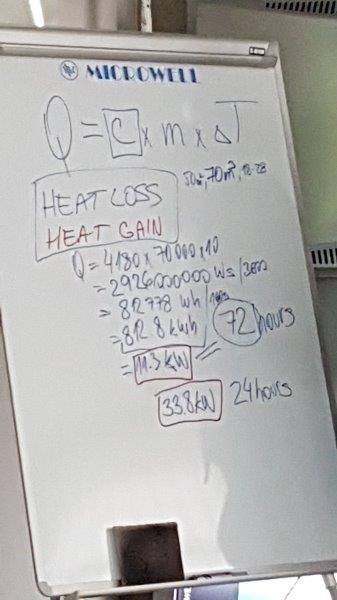 MICROWELL
Q = C x m x ΔT
70m³, 18-28
HEAT LOSS
HEAT GAIN
Q = 4180 x 70000 x 10
= 2926000000 Ws /3600
= 812778 Wh /
= 812.8 kWh / 72 hours
= 11.3 kW
33.8 kW 24 hours